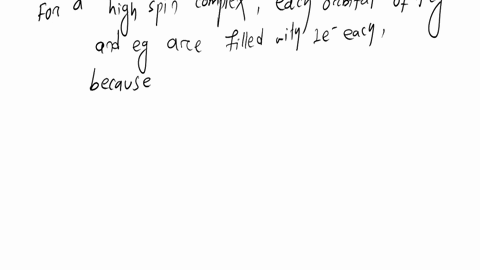 For a high spin complex, each orbital of
and eg are filled wity 1e⁻ eacy,
because